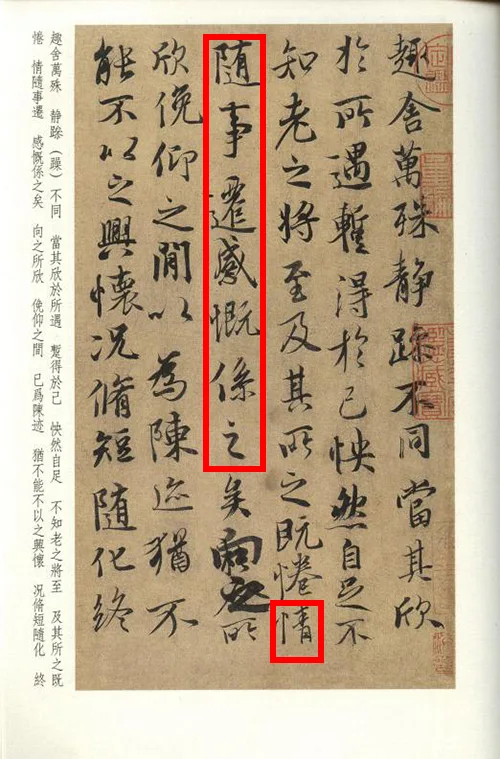 趣舍萬殊静躁不同當其欣
於所遇暫得於己怏然自足不
知老之將至及其所之既惓情
隨事遷感慨係之矣向之所
欣俛仰之閒以為陳迹猶不
能不以之興懷况脩短随化終
趣舍萬殊 静躁（躁）不同 當其欣於所遇 蹔得於己 怏然自足 不知老之將至 及其所之既
惓 情隨事遷 感慨係之矣 向之所欣 俛仰之間 已爲陳迹 猶不能不以之興懷 况脩短隨化 終